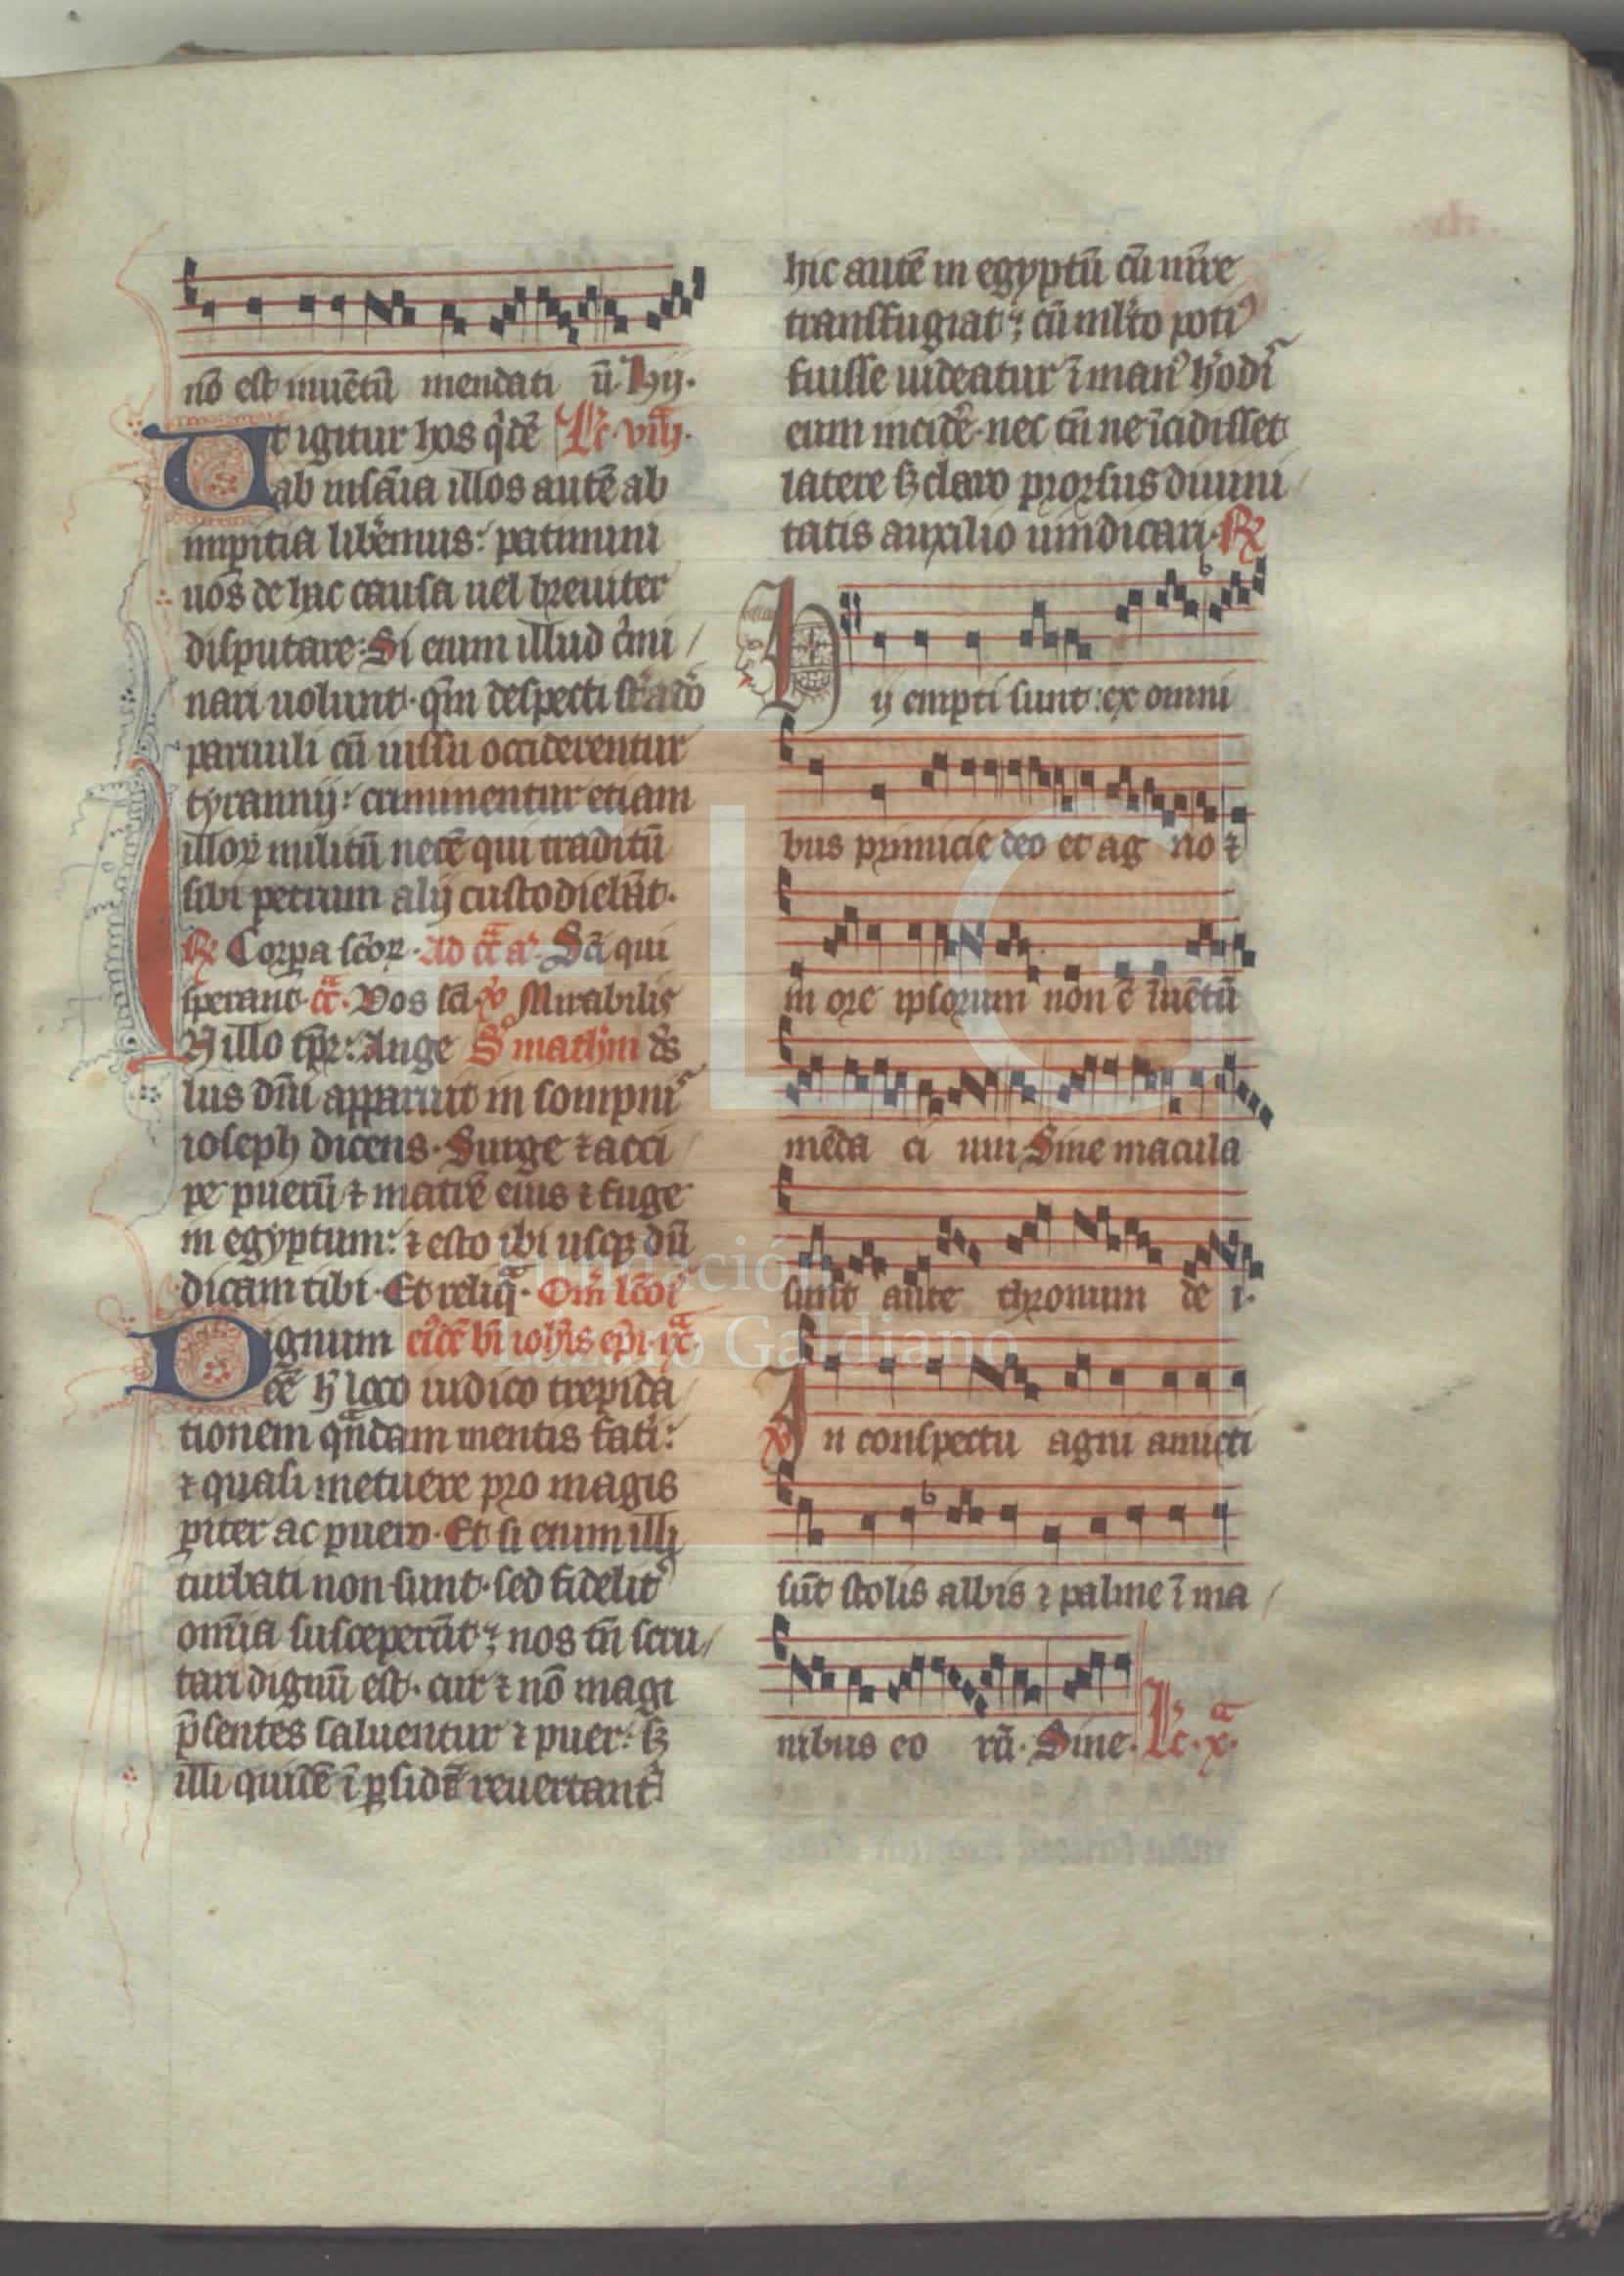 nō est inuētū mendati ū. Hij.
Ut igitur hos q̇dē Lc̄. viijᵃ.
ab insaīa illos autē ab
impitia libēmus: patimini
uos de hac causa uel breuiter
disputare: Si enim illud c̄mi
nari uolunt· qm̄ despecti
paruuli cū iussu occiderentur
tyranny: criminentur etiam
illoꝝ militū necē qui traditū
sibi petrum alij custodiebāt·
℟ Corpa sc̄oꝝ· Ad cāᵃ aᵃ· Scī qui
sperant· cāᵃ· Vos sc̄i ℣ Mirabilis
N illo tp̄r: Ange S' mathm̄ ds̄
lus dn̄i apparuit in sompni
ioseph dicens· Surge ⁊ acci
pe puerū ⁊ matrē eius ⁊ fuge
in egyptum: ⁊ esto ibi usqꝫ dū
dicam tibi· Et reliq̄· Om̄ lc̄oi
Dignum eiꝰdē bī ioh̄is ep̄i· ixᵃ·
cē h̄ loco iudico trepida
tionem qͣndam mentis fati:
⁊ quasi metuere pro magis
ꝑiter ac puero· Et si enim illi
turbati non sunt· sed fidelit
om̄ia susceperūt; nos tn̄ scru
tari dignū est· cur ⁊ nō magi
p̄sentes saluentur ⁊ puer: sꝫ
illi quidē ī ꝑsidē reuertant
hic autē in egyptū cū mr̄e
transfugiat; cū ml̄to poti⁹
fuisse uideatur ī man⁹ h̄odi
eum incidē· nec tn̄ ne īcidisset
latere sꝫ claro prorsus diuini
tatis auxilio uindicari· ℟
Hij empti sunt: ex omni
bus primicie deo et ag no ⁊
in ore ipsorum non ē īuētū
mēda ci um Sine macula
sunt ante thronum de i·
℣ In conspectu agni amicti
sūt stolis albis ⁊ palme ī ma
nibus eo rū· Sine· Lc̄· xᵃ·
FLG
Fundación
Lázaro Galdiano